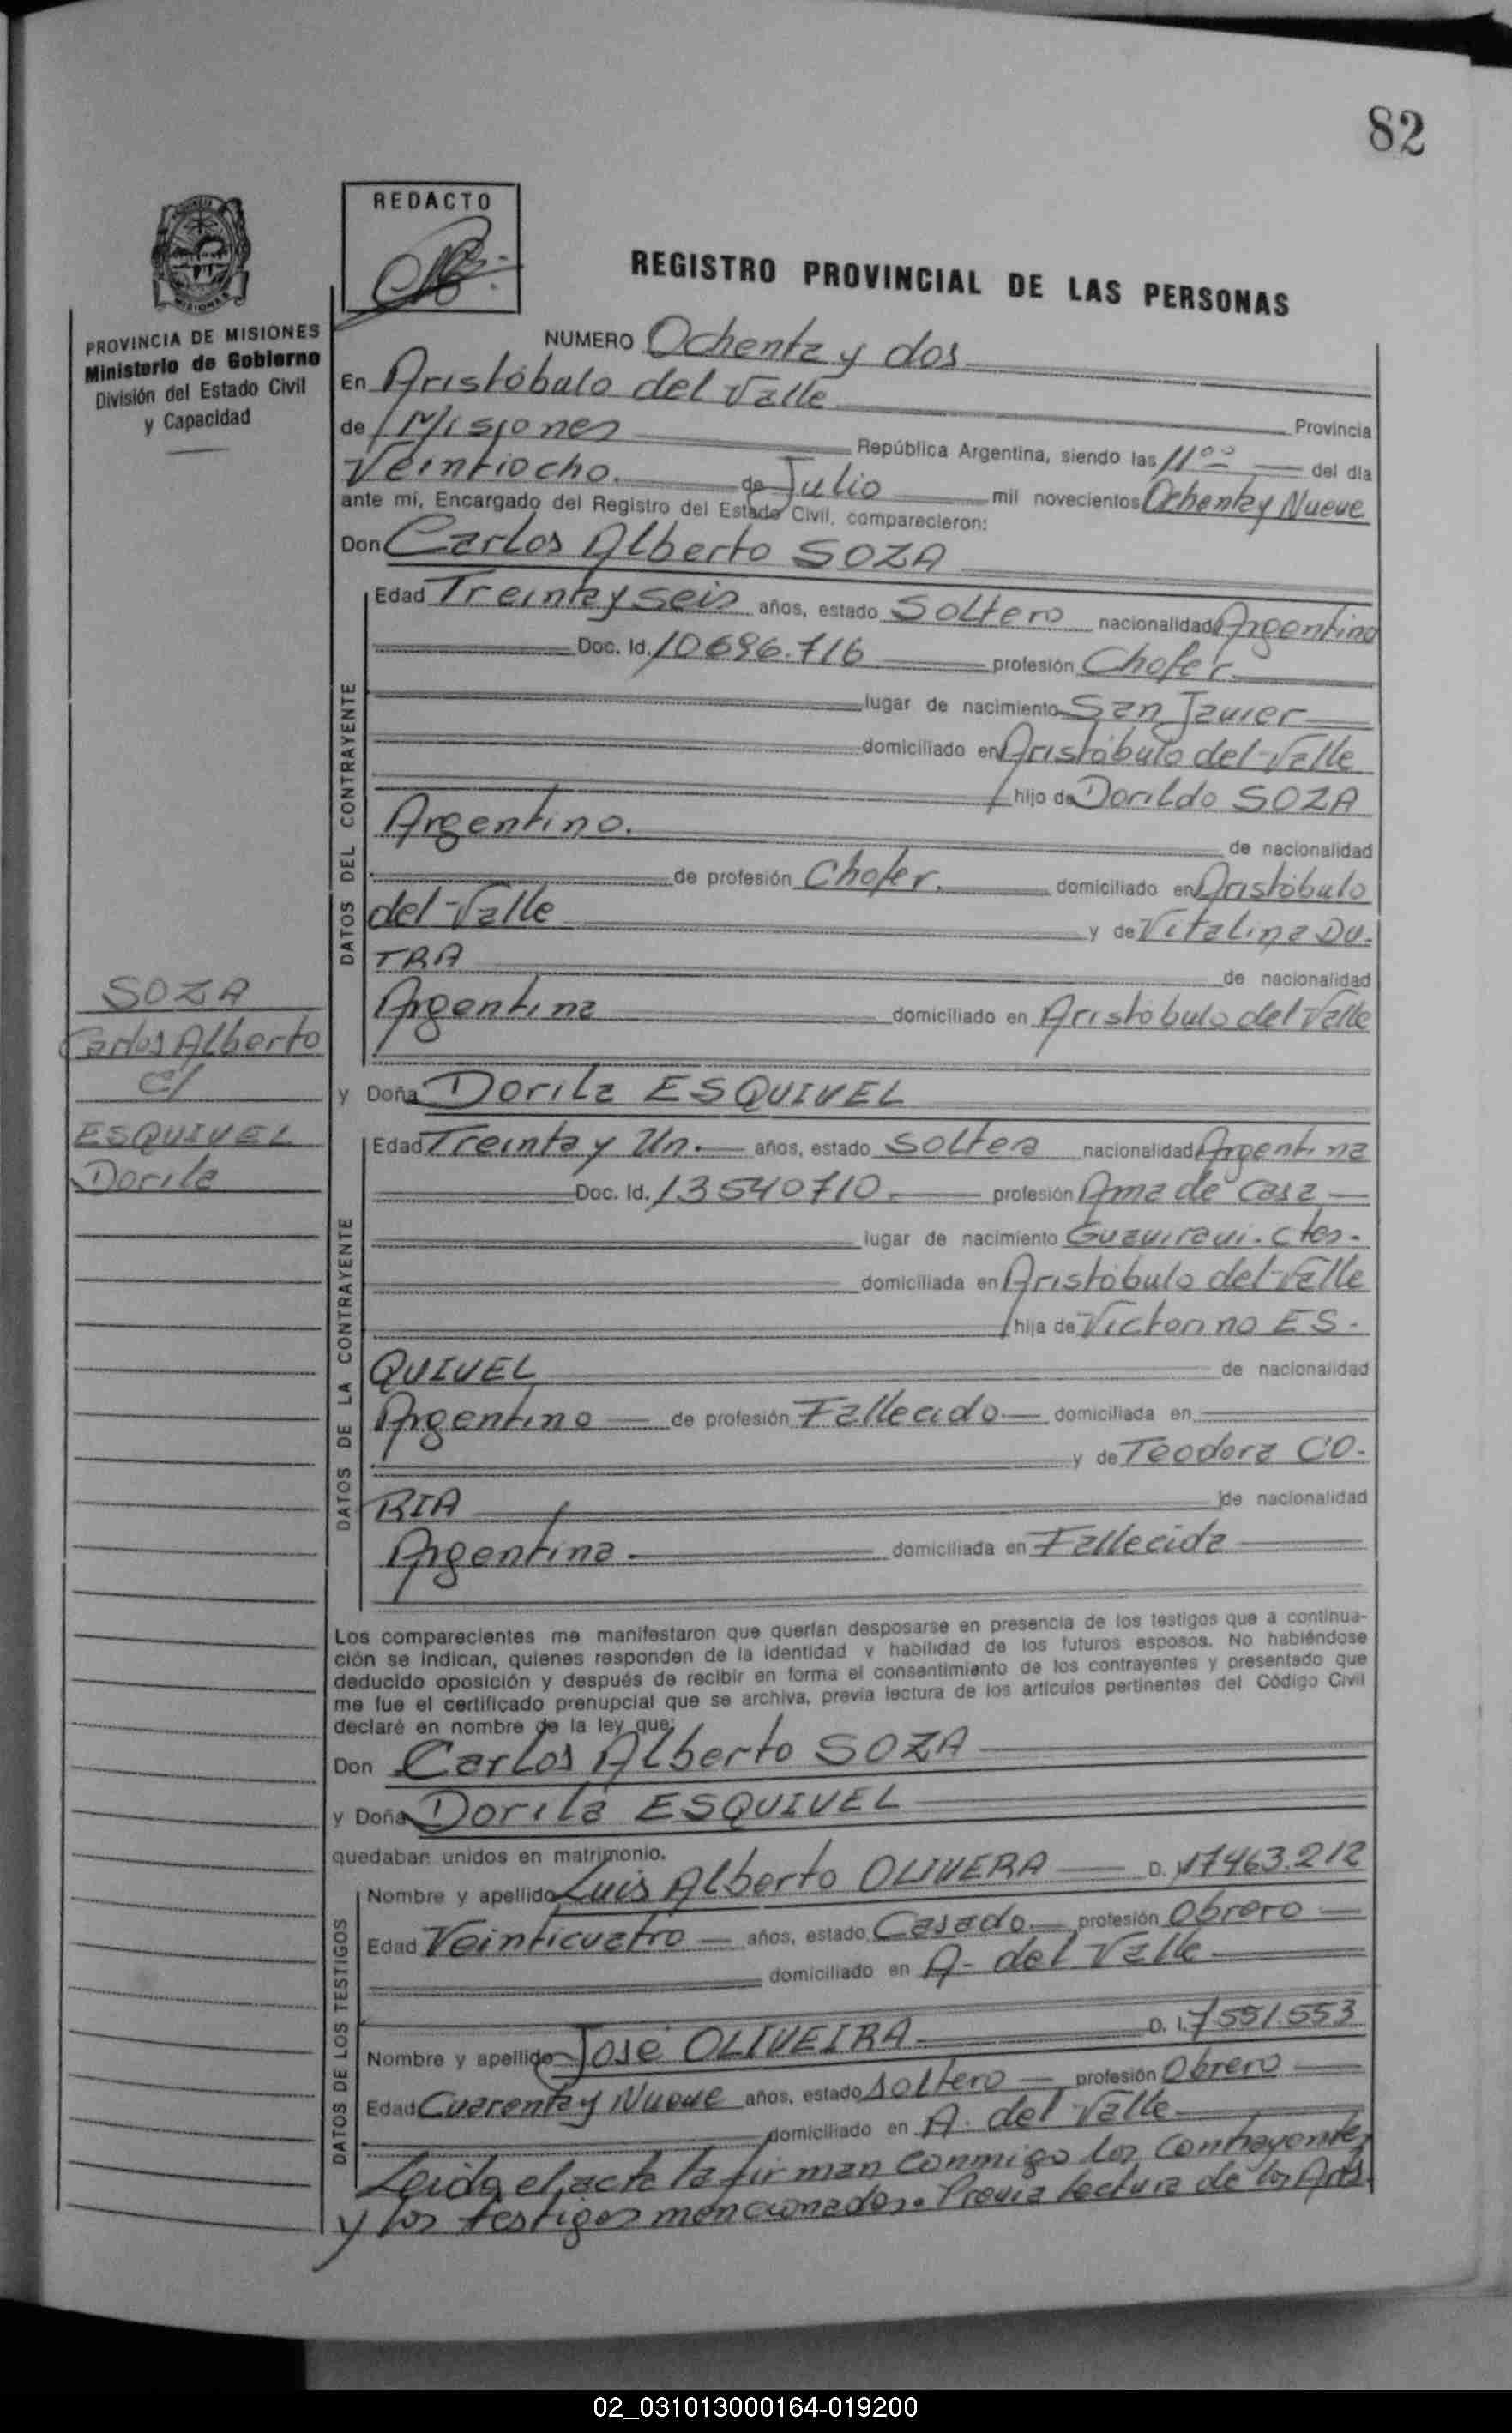 82
REDACTO
REGISTRO PROVINCIAL DE LAS PERSONAS
MISIONES
PROVINCIA DE MISIONES
Ministerio de Gobierno
División del Estado Civil
y Capacidad
NUMERO Ochenta y dos
En Aristóbulo del Valle Provincia
de Misiones República Argentina, siendo las 11ºº del día
Veintiocho. de Julio mil novecientos Ochenta y Nueve
ante mí, Encargado del Registro del Estado Civil, comparecieron:
Don Carlos Alberto SOZA
DATOS DEL CONTRAYENTE
Edad Treinta y seis años, estado Soltero nacionalidad Argentino
Doc. Id. 10696.716 profesión Chofer
lugar de nacimiento San Javier
domiciliado en Aristóbulo del Valle
hijo de Dorildo SOZA
Argentino. de nacionalidad
de profesión Chofer. domiciliado en Aristóbulo
del Valle y de Vitalina DU.
TRA de nacionalidad
Argentina domiciliado en Aristobulo del Valle
SOZA
Carlos Alberto
C/
ESQUIVEL
Dorila
y Doña Dorila ESQUIVEL
DATOS DE LA CONTRAYENTE
Edad Treinta y Un. años, estado Soltera nacionalidad Argentina
Doc. Id. 13540710. profesión Ama de casa
lugar de nacimiento Guaviravi. Ctes.
domiciliada en Aristóbulo del Valle
hija de Victorino ES-
QUIVEL de nacionalidad
Argentino de profesión Fallecido domiciliada en
y de Teodora CO-
RIA de nacionalidad
Argentina domiciliada en Fallecida
Los comparecientes me manifestaron que querían desposarse en presencia de los testigos que a continua-
ción se indican, quienes responden de la identidad y habilidad de los futuros esposos. No habiéndose
deducido oposición y después de recibir en forma el consentimiento de los contrayentes y presentado que
me fue el certificado prenupcial que se archiva, previa lectura de los artículos pertinentes del Código Civil
declaré en nombre de la ley que:
Don Carlos Alberto SOZA
y Doña Dorila ESQUIVEL
quedaban unidos en matrimonio.
DATOS DE LOS TESTIGOS
Nombre y apellido Luis Alberto OLIVERA D. 17463.212
Edad Veinticuatro años, estado Casado profesión Obrero
domiciliado en A- del Valle
Nombre y apellido José OLIVEIRA D. I. 7551.553
Edad Cuarenta y Nueve años, estado soltero profesión Obrero
domiciliado en A. del Valle
Leida el acta la firman conmigo los contrayentes
y los testigos mencionados. Previa lectura de los Arts.
02_031013000164-019200